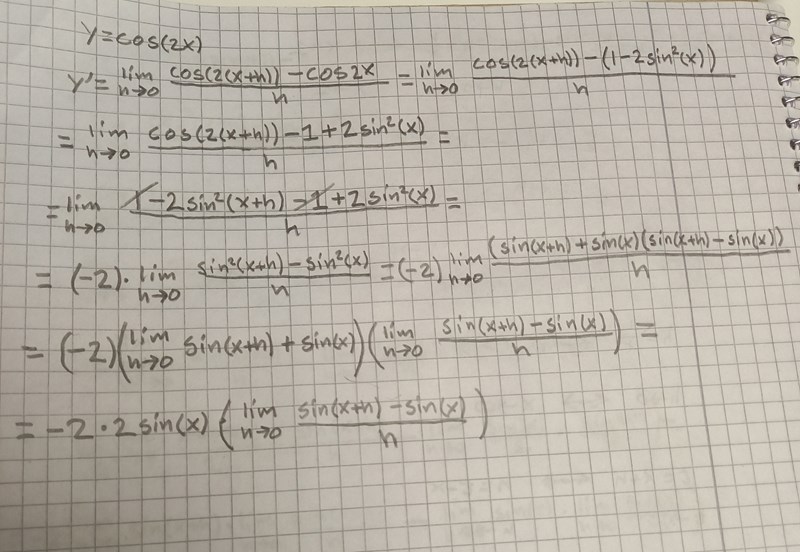 y=cos(2x)
y'= lim h→0 (cos(2(x+h)) - cos2x)/h = lim h→0 (cos(2(x+h)) - (1-2sin²(x)))/h
= lim h→0 (cos(2(x+h)) - 1 + 2sin²(x))/h =
= lim h→0 (1 - 2sin²(x+h) - 1 + 2sin²(x))/h =
= (-2) · lim h→0 (sin²(x+h) - sin²(x))/h = (-2) lim h→0 ((sin(x+h) + sin(x)(sin(x+h) - sin(x)))/h
= (-2)(lim h→0 sin(x+h) + sin(x))(lim h→0 (sin(x+h) - sin(x))/h) =
= -2 · 2sin(x) (lim h→0 (sin(x+h) - sin(x))/h)